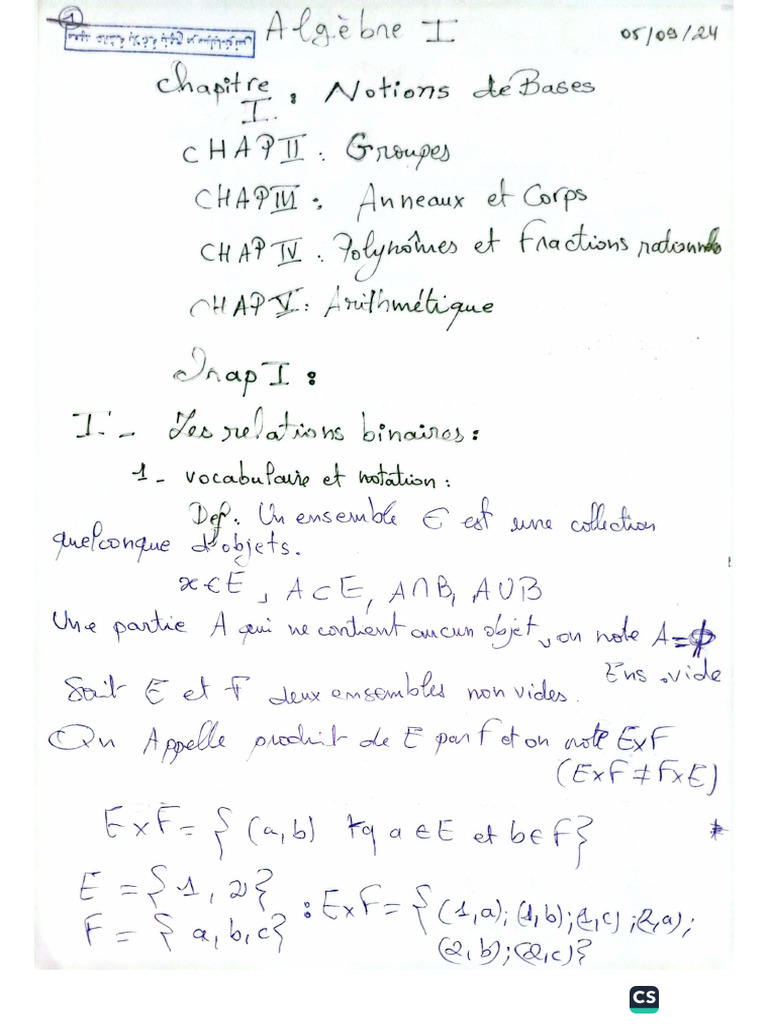 1
Algèbre I 05/09/24
Chapitre I : Notions de Bases
CHAP II : Groupes
CHAP III : Anneaux et Corps
CHAP IV : Polynômes et Fractions rationnels
CHAP V : Arithmétique
Chap I :
I - Les relations binaires :
1 - vocabulaire et notation :
Def : Un ensemble E est une collection
quelconque d'objets.
x ∈ E, A ⊂ E, A ∩ B, A ∪ B
Une partie A qui ne contient aucun objet, on note A = ϕ
Ens. vide
Soit E et F deux ensembles non vides.
On Appelle produit de E par F et on note E×F
(E×F ≠ F×E)
E×F = { (a,b) tq a ∈ E et b ∈ F }
E = {1, 2}
F = { a, b, c} : E×F = { (1,a); (1,b); (1,c); (2,a);
(2,b); (2,c)}
CS